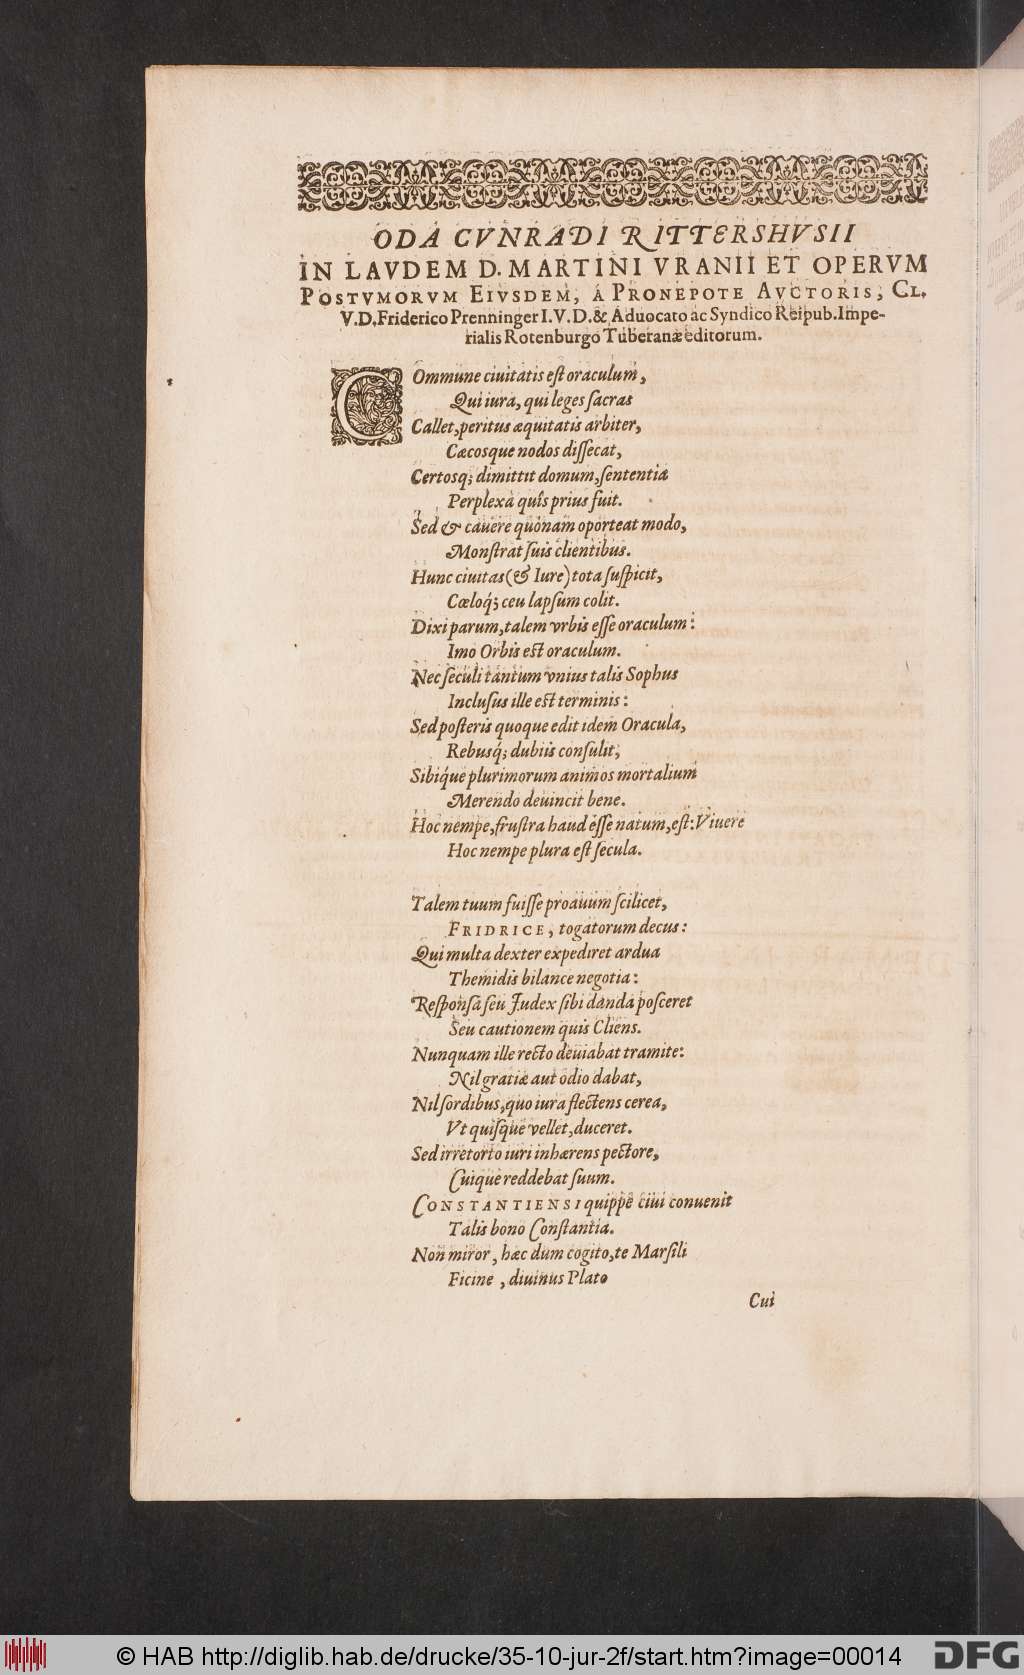 ODA CVNRADI RITTERSHVSII
IN LAVDEM D. MARTINI VRANII ET OPERVM
POSTVMORVM EIVSDEM, A PRONEPOTE AVCTORIS, CL.
V.D. Friderico Prenninger I.V.D. & Aduocato ac Syndico Reipub. Impe-
rialis Rotenburgo Tuberanæ editorum.
COmmune ciuitatis est oraculum,
Qui iura, qui leges sacras
Callet, peritus æquitatis arbiter,
Cæcosque nodos dissecat,
Certosq; dimittit domum, sententiæ
Perplexa quîs prius fuit.
Sed & cauere quonam oporteat modo,
Monstrat suis clientibus.
Hunc ciuitas (& Iure) tota suspicit,
Cœloq́; ceu lapsum colit.
Dixi parum, talem vrbis esse oraculum:
Imo Orbis est oraculum.
Nec seculi tantum vnius talis Sophus
Inclusus ille est terminis:
Sed posteris quoque edit idem Oracula,
Rebusq́; dubiis consulit,
Sibique plurimorum animos mortalium
Merendo deuincit bene.
Hoc nempe, frustra haud esse natum, est: Viuere
Hoc nempe plura est secula.
Talem tuum fuisse proauum scilicet,
FRIDRICE, togatorum decus:
Qui multa dexter expediret ardua
Themidis bilance negotia:
Responsa seu Judex sibi danda posceret
Seu cautionem quis Cliens.
Nunquam ille recto deuiabat tramite:
Nil gratiæ aut odio dabat,
Nil sordibus, quo iura flectens cerea,
Vt quisque vellet, duceret.
Sed irretorto iuri inhærens pectore,
Cuique reddebat suum.
CONSTANTIENSI quippe ciui conuenit
Talis bono Constantia.
Non miror, hæc dum cogito, te Marsili
Ficine, diuinus Plato
Cui
© HAB http://diglib.hab.de/drucke/35-10-jur-2f/start.htm?image=00014
DFG